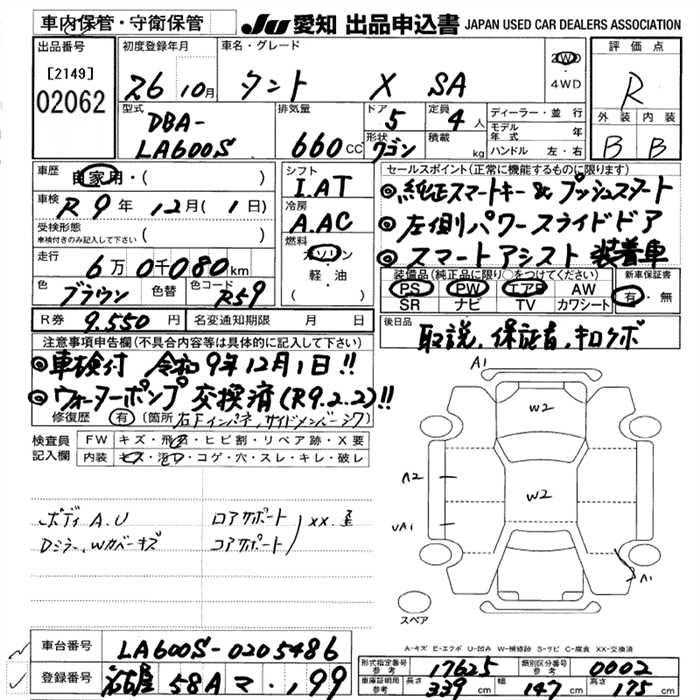 車内保管・守衛保管
JU 愛知 出品申込書 JAPAN USED CAR DEALERS ASSOCIATION
出品番号
[2149]
02062
初度登録年月
26 10月
車名・グレード
タント X SA
2WD
4WD
評価点
R
外装 内装
B B
型式
DBA-
LA600S
排気量
660cc
ドア
5
定員
4人
形状
ワゴン
積載
kg
ディーラー・並行
モデル年式 年
ハンドル 左・右
車歴
自家用・( )
車検
R9年 12月( 1日)
受検形態
車検付きのみ記入して下さい ( )
走行
6万0千080km
色
ブラウン
色替
色コード
R59
R券 9.550円
名変通知期限 月 日
シフト
I.AT
冷房
A.AC
燃料
ガソリン
軽・油
( )
セールスポイント(正常に機能するものに限ります)
◎純正スマートキー&プッシュスタート
◎左側パワースライドドア
◎スマートアシスト 装着車
装備品(純正品に限り○をつけてください)
PS PW エアB AW
SR ナビ TV カワシート
新車保証書
有・無
後日品
取説、保証書、キロケボ
注意事項申告欄(不具合内容等は具体的に記入して下さい)
◎車検付 令和9年12月1日!!
◎ウォーターポンプ交換済(R9.2.2)!!
修復歴 有 (箇所 右Fインパネ,サイドメンバーシワ)
検査員記入欄
FW キズ・飛石・ヒビ割・リペア跡・X要
内装 キズ・汚レ・コゲ・穴・スレ・キレ・破レ
ボディA.U
Dミラー,Wカバーキズ
ロアサポート
コアサポート
XX.歪
A1
W2
A2
W2
UA1
A1
スペア
A-キズ E-エクボ U-凹み W-補修跡 S-サビ C-腐食 XX-交換済
車台番号 LA600S-0205486
登録番号 名古屋 58A マ・199
形式指定番号 参考 17625
類別区分番号 参考 0002
車庫証明用 参考 長さ 339cm 幅 147cm 高さ 175cm